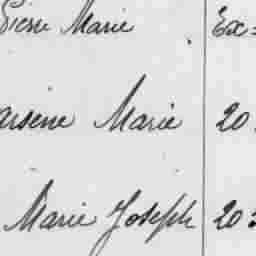 Pierre Marie Ex
arsène Marie 20
Marie Joseph 20